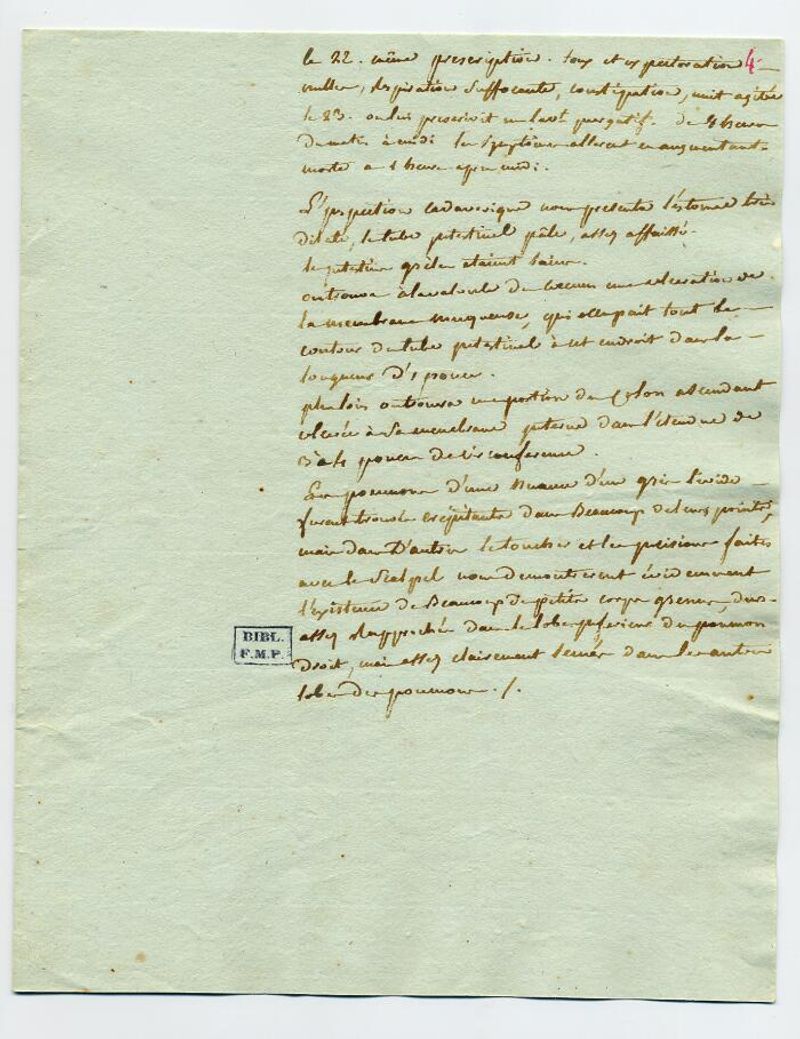 le 22. même prescription. toux et expectoration 4
nulles, respiration suffocante, constipation, nuit agitée
le 23. on lui prescrivit un lavt purgatif. de 4 heures
du matin à midi les symptômes allerent en augmentant.
morte a 1 heure apres midi.
L'inspection cadaverique nous presenta l'estomac très
dilaté, le tube intestinal pâle, assez affaissé.
les intestins grêles etaient sains.
on trouva à la valvule du coecum une ulceration de
la membrane muqueuse, qui occupait tout le
contour du tube intestinal à cet endroit dans la
longueur d'1 pouce.
plus loin on trouva une portion du Colon ascendant
ulcerée à sa membrane interne dans l'étendue de
3 à 4 pouces de circonférence.
Les poumons d'une nuance d'un gris livide
furent trouvés crépitants dans Beaucoup de leurs points,
mais dans D'autres le toucher et les incisions faites
avec le Scalpel nous demontrerent évidemment
l'existence de Beaucoup de petits corps grenus, durs
assez Rapprochés dans le lobe inferieur du poumon
droit, mais assez clairement semés dans les autres
lobes des poumons. /.
BIBL.
F.M.P.